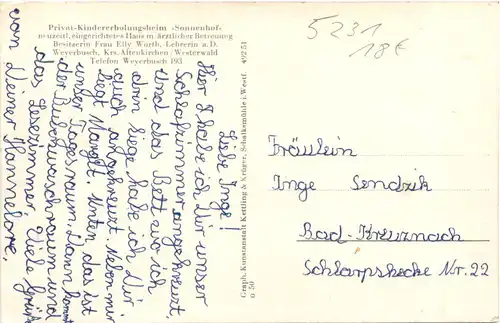 Privat-Kindererholungsheim »Sonnenhof«
neuzeitl. eingerichtetes Haus m. ärztlicher Betreuung
Besitzerin Frau Elly Wurth, Lehrerin a. D.
Weyerbusch, Krs. Altenkirchen / Westerwald
Telefon Weyerbusch 193
Liebe Inge!
Hier habe ich Dir unser
Schlafzimmer angekreuzt.
und das Bett wo ich
drin liege habe ich Dir
auch angekreuzt. Neben mir
liegt Margit. Unten das ist
unser Tagesraum. Dann kommt
der Buschwaschraum und
das Lesezimmer. Viele Grüße
von Deiner Hannelore.
Graph. Kunstanstalt Kettling & Krüger, Schalksmühle i. Westf. 49251
o 50
5231
18€
Fräulein
Inge Sendrik
Bad-Kreuznach
Schlarpshecke Nr. 22